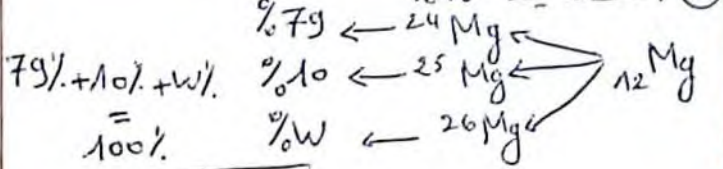 %79 ← ²⁴Mg
79%+10%+W% %10 ← ²⁵Mg ₁₂Mg
=
100% %W ← ²⁶Mg